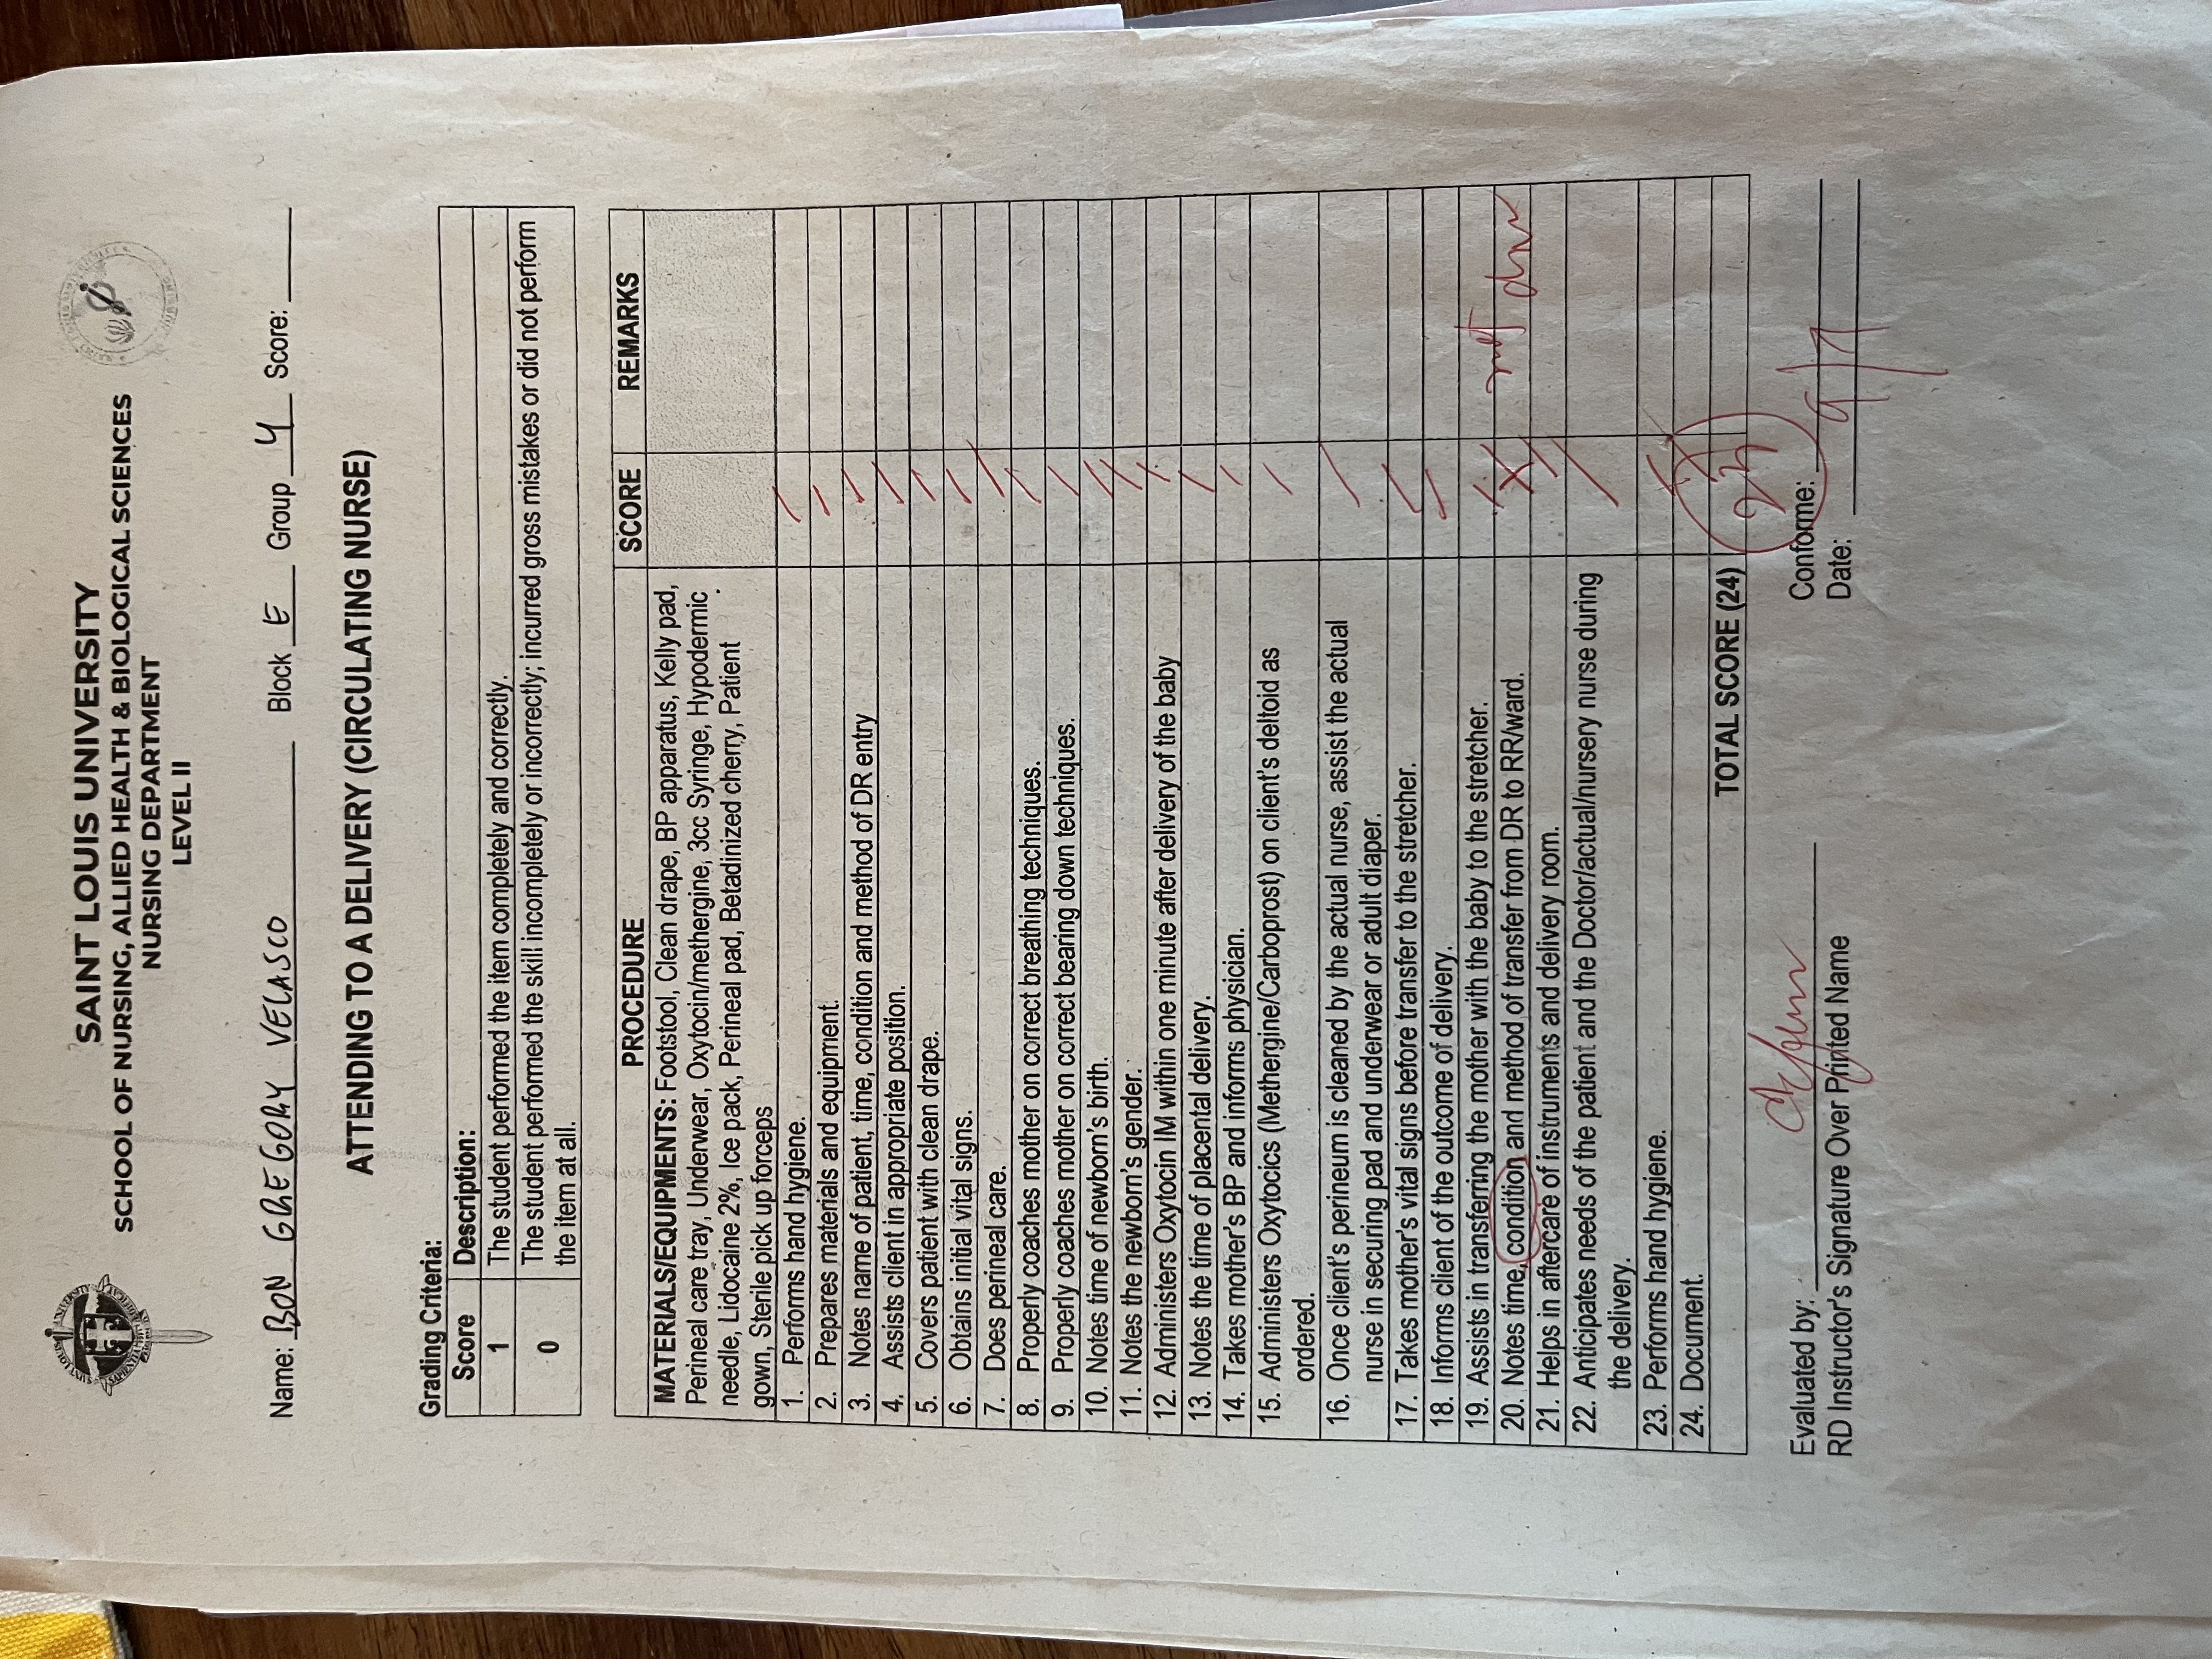 SAINT LOUIS UNIVERSITY
SCHOOL OF NURSING, ALLIED HEALTH & BIOLOGICAL SCIENCES
NURSING DEPARTMENT
LEVEL II
Name: BON GREGORY VELASCO Block E Group 4 Score:
ATTENDING TO A DELIVERY (CIRCULATING NURSE)
Grading Criteria:
Score Description:
1 The student performed the item completely and correctly.
0 The student performed the skill incompletely or incorrectly; incurred gross mistakes or did not perform
the item at all.
PROCEDURE SCORE REMARKS
MATERIALS/EQUIPMENTS: Footstool, Clean drape, BP apparatus, Kelly pad,
Perineal care tray, Underwear, Oxytocin/methergine, 3cc Syringe, Hypodermic
needle, Lidocaine 2%, Ice pack, Perineal pad, Betadinized cherry, Patient
gown, Sterile pick up forceps
1. Performs hand hygiene.
2. Prepares materials and equipment.
3. Notes name of patient, time, condition and method of DR entry
4. Assists client in appropriate position.
5. Covers patient with clean drape.
6. Obtains initial vital signs.
7. Does perineal care.
8. Properly coaches mother on correct breathing techniques.
9. Properly coaches mother on correct bearing down techniques.
10. Notes time of newborn's birth.
11. Notes the newborn's gender.
12. Administers Oxytocin IM within one minute after delivery of the baby
13. Notes the time of placental delivery.
14. Takes mother's BP and informs physician.
15. Administers Oxytocics (Methergine/Carboprost) on client's deltoid as
ordered.
16. Once client's perineum is cleaned by the actual nurse, assist the actual
nurse in securing pad and underwear or adult diaper.
17. Takes mother's vital signs before transfer to the stretcher.
18. Informs client of the outcome of delivery.
19. Assists in transferring the mother with the baby to the stretcher.
20. Notes time, condition and method of transfer from DR to RR/ward. X not
21. Helps in aftercare of instruments and delivery room.
22. Anticipates needs of the patient and the Doctor/actual/nursery nurse during
the delivery.
23. Performs hand hygiene.
24. Document.
TOTAL SCORE (24) 23
Evaluated by: Conforme:
RD Instructor's Signature Over Printed Name Date: 9/7